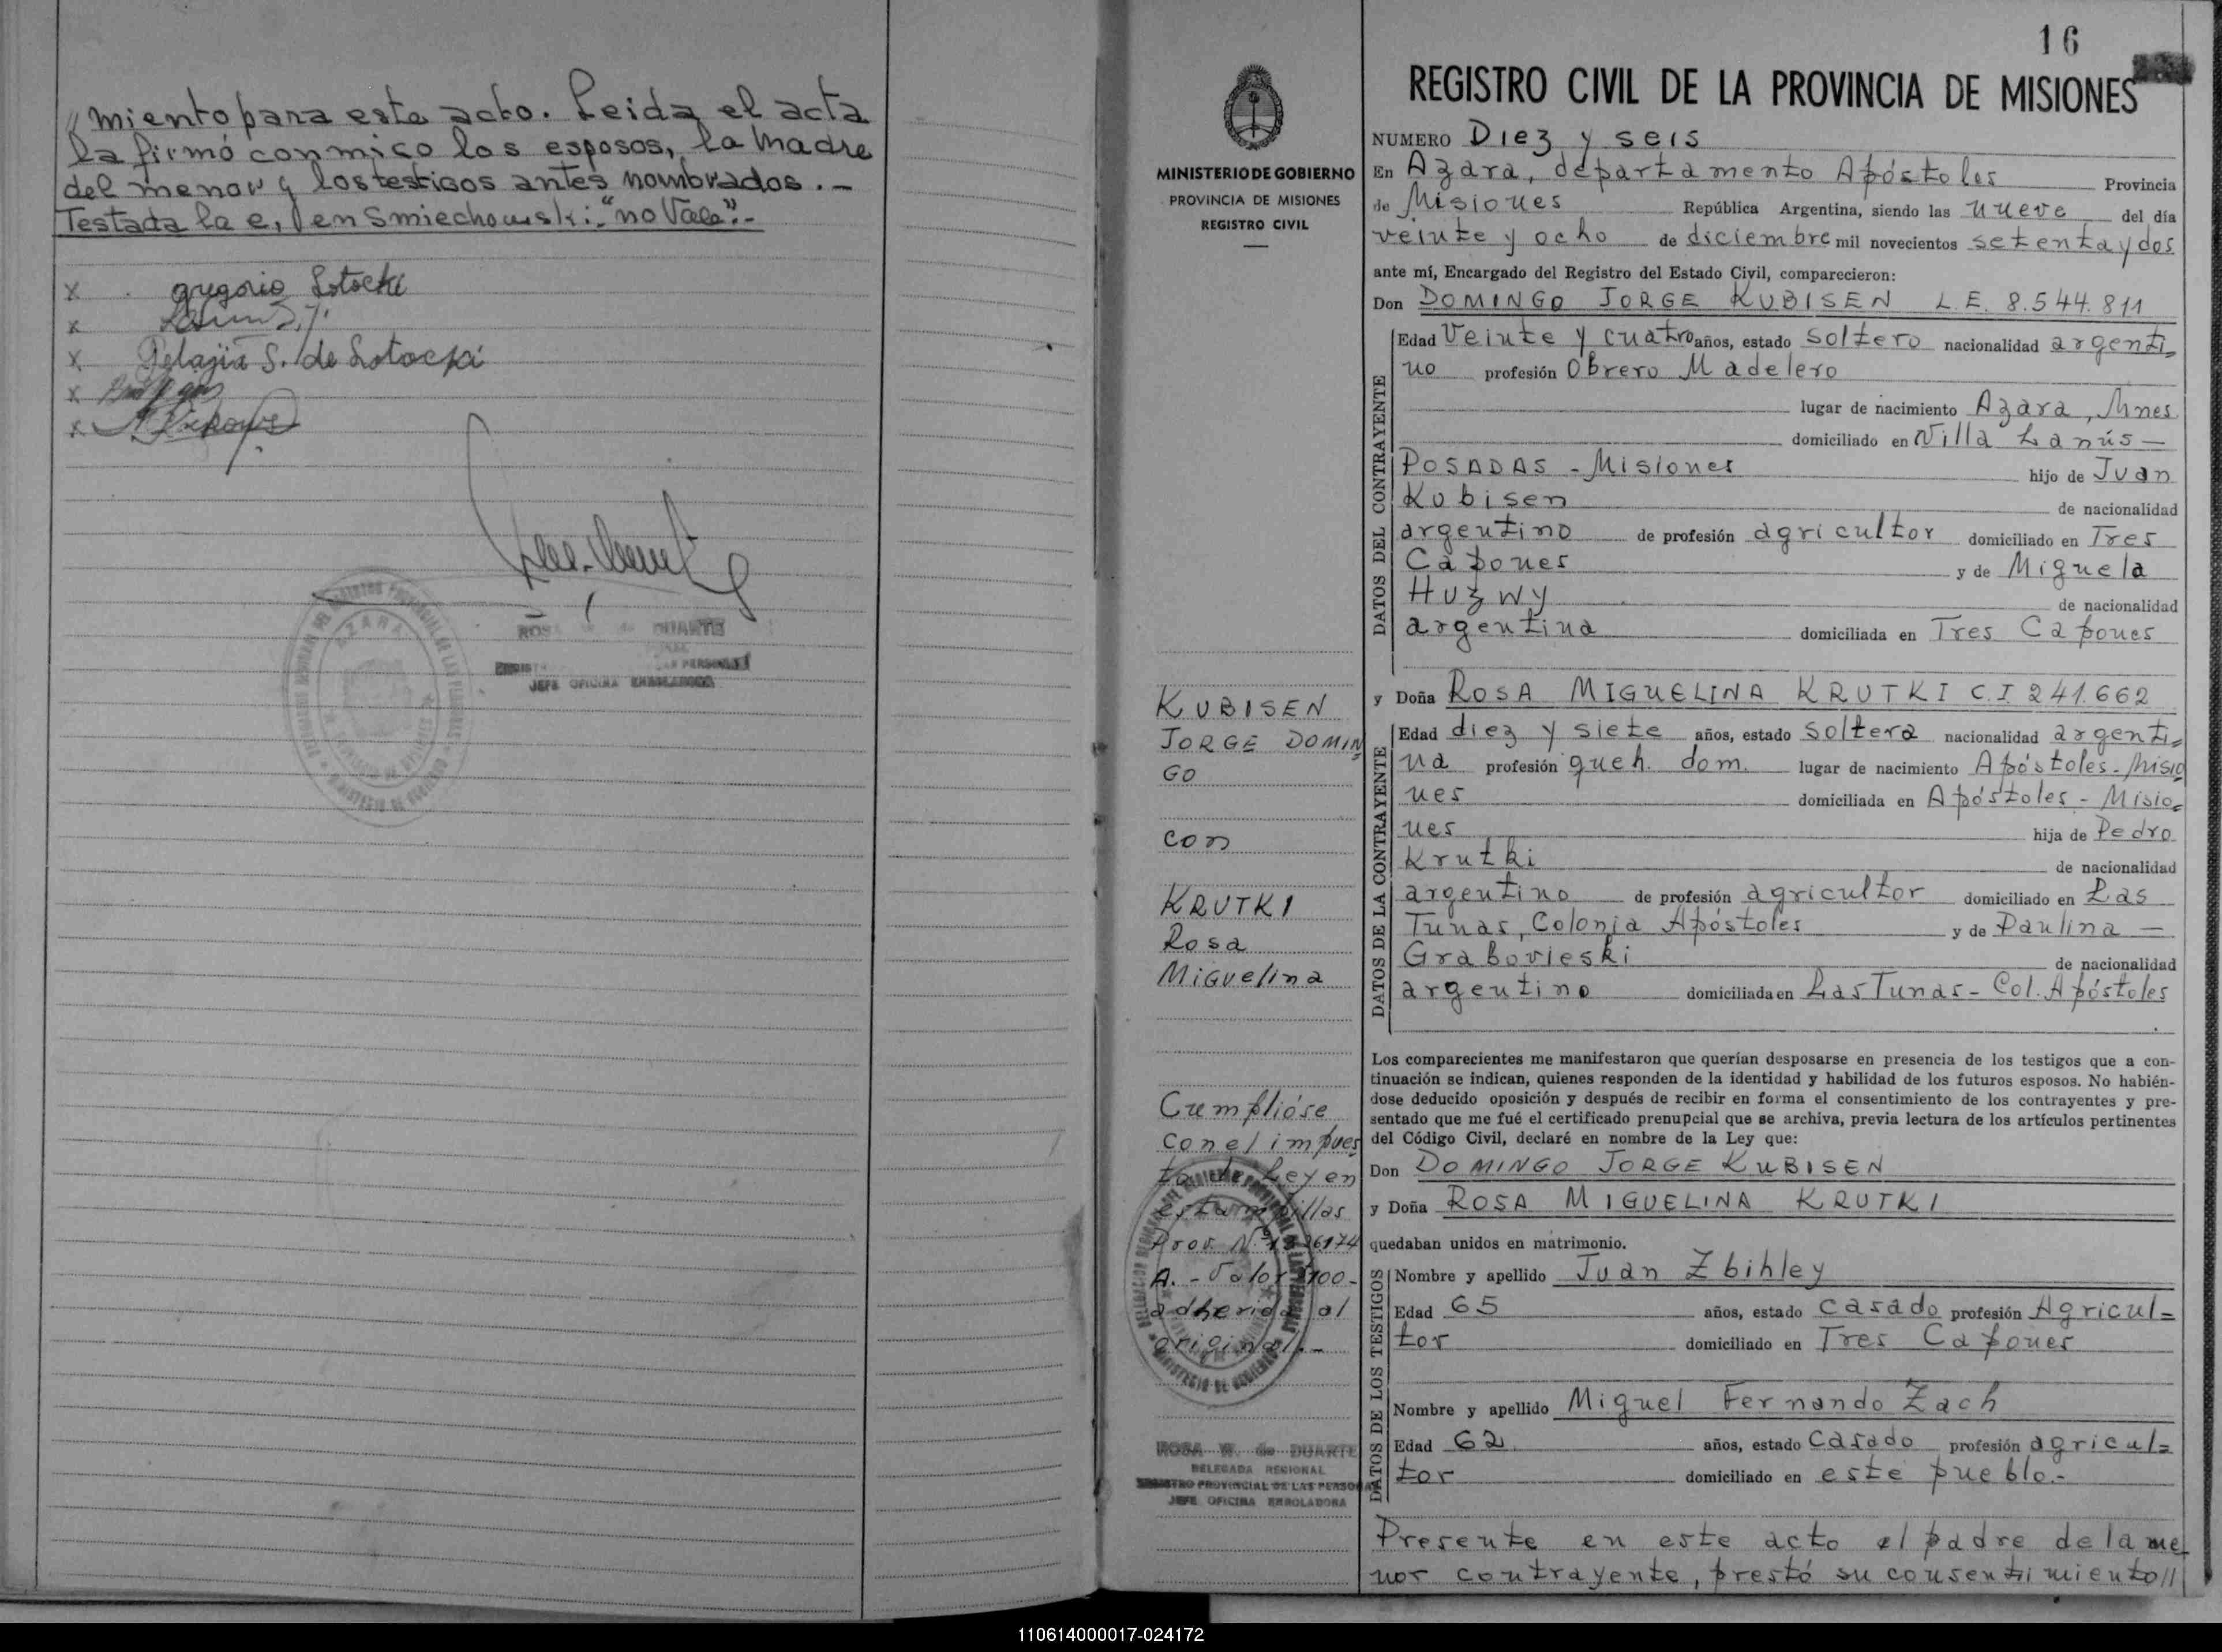 miento para este acto. Leida el acta
la firmó conmigo los esposos, la madre
del menor y los testigos antes nombrados.-
Testada la e, en Smiechowski: "no Vale".-
x gregorio Lotocki
x
x Pelagia S. de Lotocki
x
x
AZARA
ROSA W. de DUARTE
JEFE OFICINA ENROLADORA
16
REGISTRO CIVIL DE LA PROVINCIA DE MISIONES
MINISTERIO DE GOBIERNO
PROVINCIA DE MISIONES
REGISTRO CIVIL
KUBISEN
JORGE DOMIN
GO
con
KRUTKI
Rosa
Miguelina
Cumplióse
con el impues
to de Ley en
estampillas
Prov. Nº
A. - Valor $100-
adherida al
original.-
ROSA W. de DUARTE
DELEGADA REGIONAL
REGISTRO PROVINCIAL DE LAS PERSONAS
JEFE OFICINA ENROLADORA
NUMERO Diez y seis
En Azara, departamento Apóstoles Provincia
de Misiones República Argentina, siendo las nueve del día
veinte y ocho de diciembre mil novecientos setenta y dos
ante mí, Encargado del Registro del Estado Civil, comparecieron:
Don DOMINGO JORGE KUBISEN L.E. 8.544.811
DATOS DEL CONTRAYENTE
Edad Veinte y cuatro años, estado soltero nacionalidad argenti=
no profesión Obrero Madelero
lugar de nacimiento Azara, Mnes
domiciliado en Villa Lanús —
POSADAS - Misiones hijo de Juan
Kubisen de nacionalidad
argentino de profesión agricultor domiciliado en Tres
Capones y de Miguela
Huzwy de nacionalidad
argentina domiciliada en Tres Capones
y Doña ROSA MIGUELINA KRUTKI C.I. 241.662
DATOS DE LA CONTRAYENTE
Edad diez y siete años, estado soltera nacionalidad argenti=
na profesión queh. dom. lugar de nacimiento Apóstoles - Misio
nes domiciliada en Apóstoles - Misio=
nes hija de Pedro
Krutki de nacionalidad
argentino de profesión agricultor domiciliado en Las
Tunas, Colonia Apóstoles y de Paulina —
Grabovieski de nacionalidad
argentino domiciliada en Las Tunas - Col. Apóstoles
Los comparecientes me manifestaron que querían desposarse en presencia de los testigos que a con-
tinuación se indican, quienes responden de la identidad y habilidad de los futuros esposos. No habién-
dose deducido oposición y después de recibir en forma el consentimiento de los contrayentes y pre-
sentado que me fué el certificado prenupcial que se archiva, previa lectura de los artículos pertinentes
del Código Civil, declaré en nombre de la Ley que:
Don DOMINGO JORGE KUBISEN
y Doña ROSA MIGUELINA KRUTKI
quedaban unidos en matrimonio.
DATOS DE LOS TESTIGOS
Nombre y apellido Juan Zbihley
Edad 65 años, estado casado profesión Agricul=
tor domiciliado en Tres Capones
Nombre y apellido Miguel Fernando Zach
Edad 62 años, estado Casado profesión agricul=
tor domiciliado en este pueblo.-
Presente en este acto el padre de la me
nor contrayente, prestó su consentimiento//
110614000017-024172